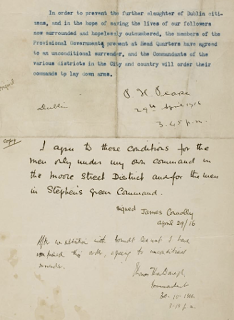 In order to prevent the further slaughter of Dublin citi-
zens, and in the hope of saving the lives of our followers
now surrounded and hopelessly outnumbered, the members of the
Provisional Government present at Head Quarters have agreed
to an unconditional surrender, and the Commandants of the
various districts in the City and country will order their
commands to lay down arms.
P. H. Pearse
29th April 1916
3.45 p.m.
Dublin
copy
I agree to these conditions for the
men only under my own command
in the Moore Street District and for the men
in Stephen's Green Command.
signed James Connolly
April 29/16
After consultation with Commandt Ceannt I have
confirmed this order, agreeing to unconditional
surrender.
Thomas MacDonagh
Commandant
30. IV. 1916
3.15 p.m.